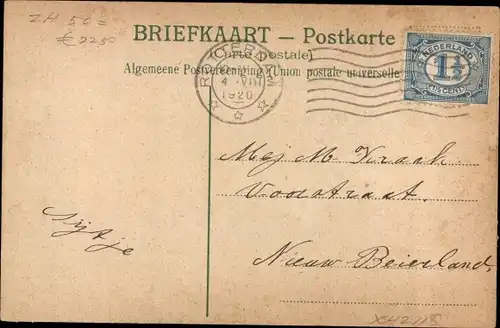 ZH 50=
€ 2250
BRIEFKAART — Postkarte
(Carte postale)
Algemeene Postvereeniging (Union postale universelle
ROTTERDAM
4 VIII
1920
NEDERLAND
1½
1½ CENT
Mej M. Kraak
Voorstraat.
Nieuw Beierland.
Sijtje
XH2118